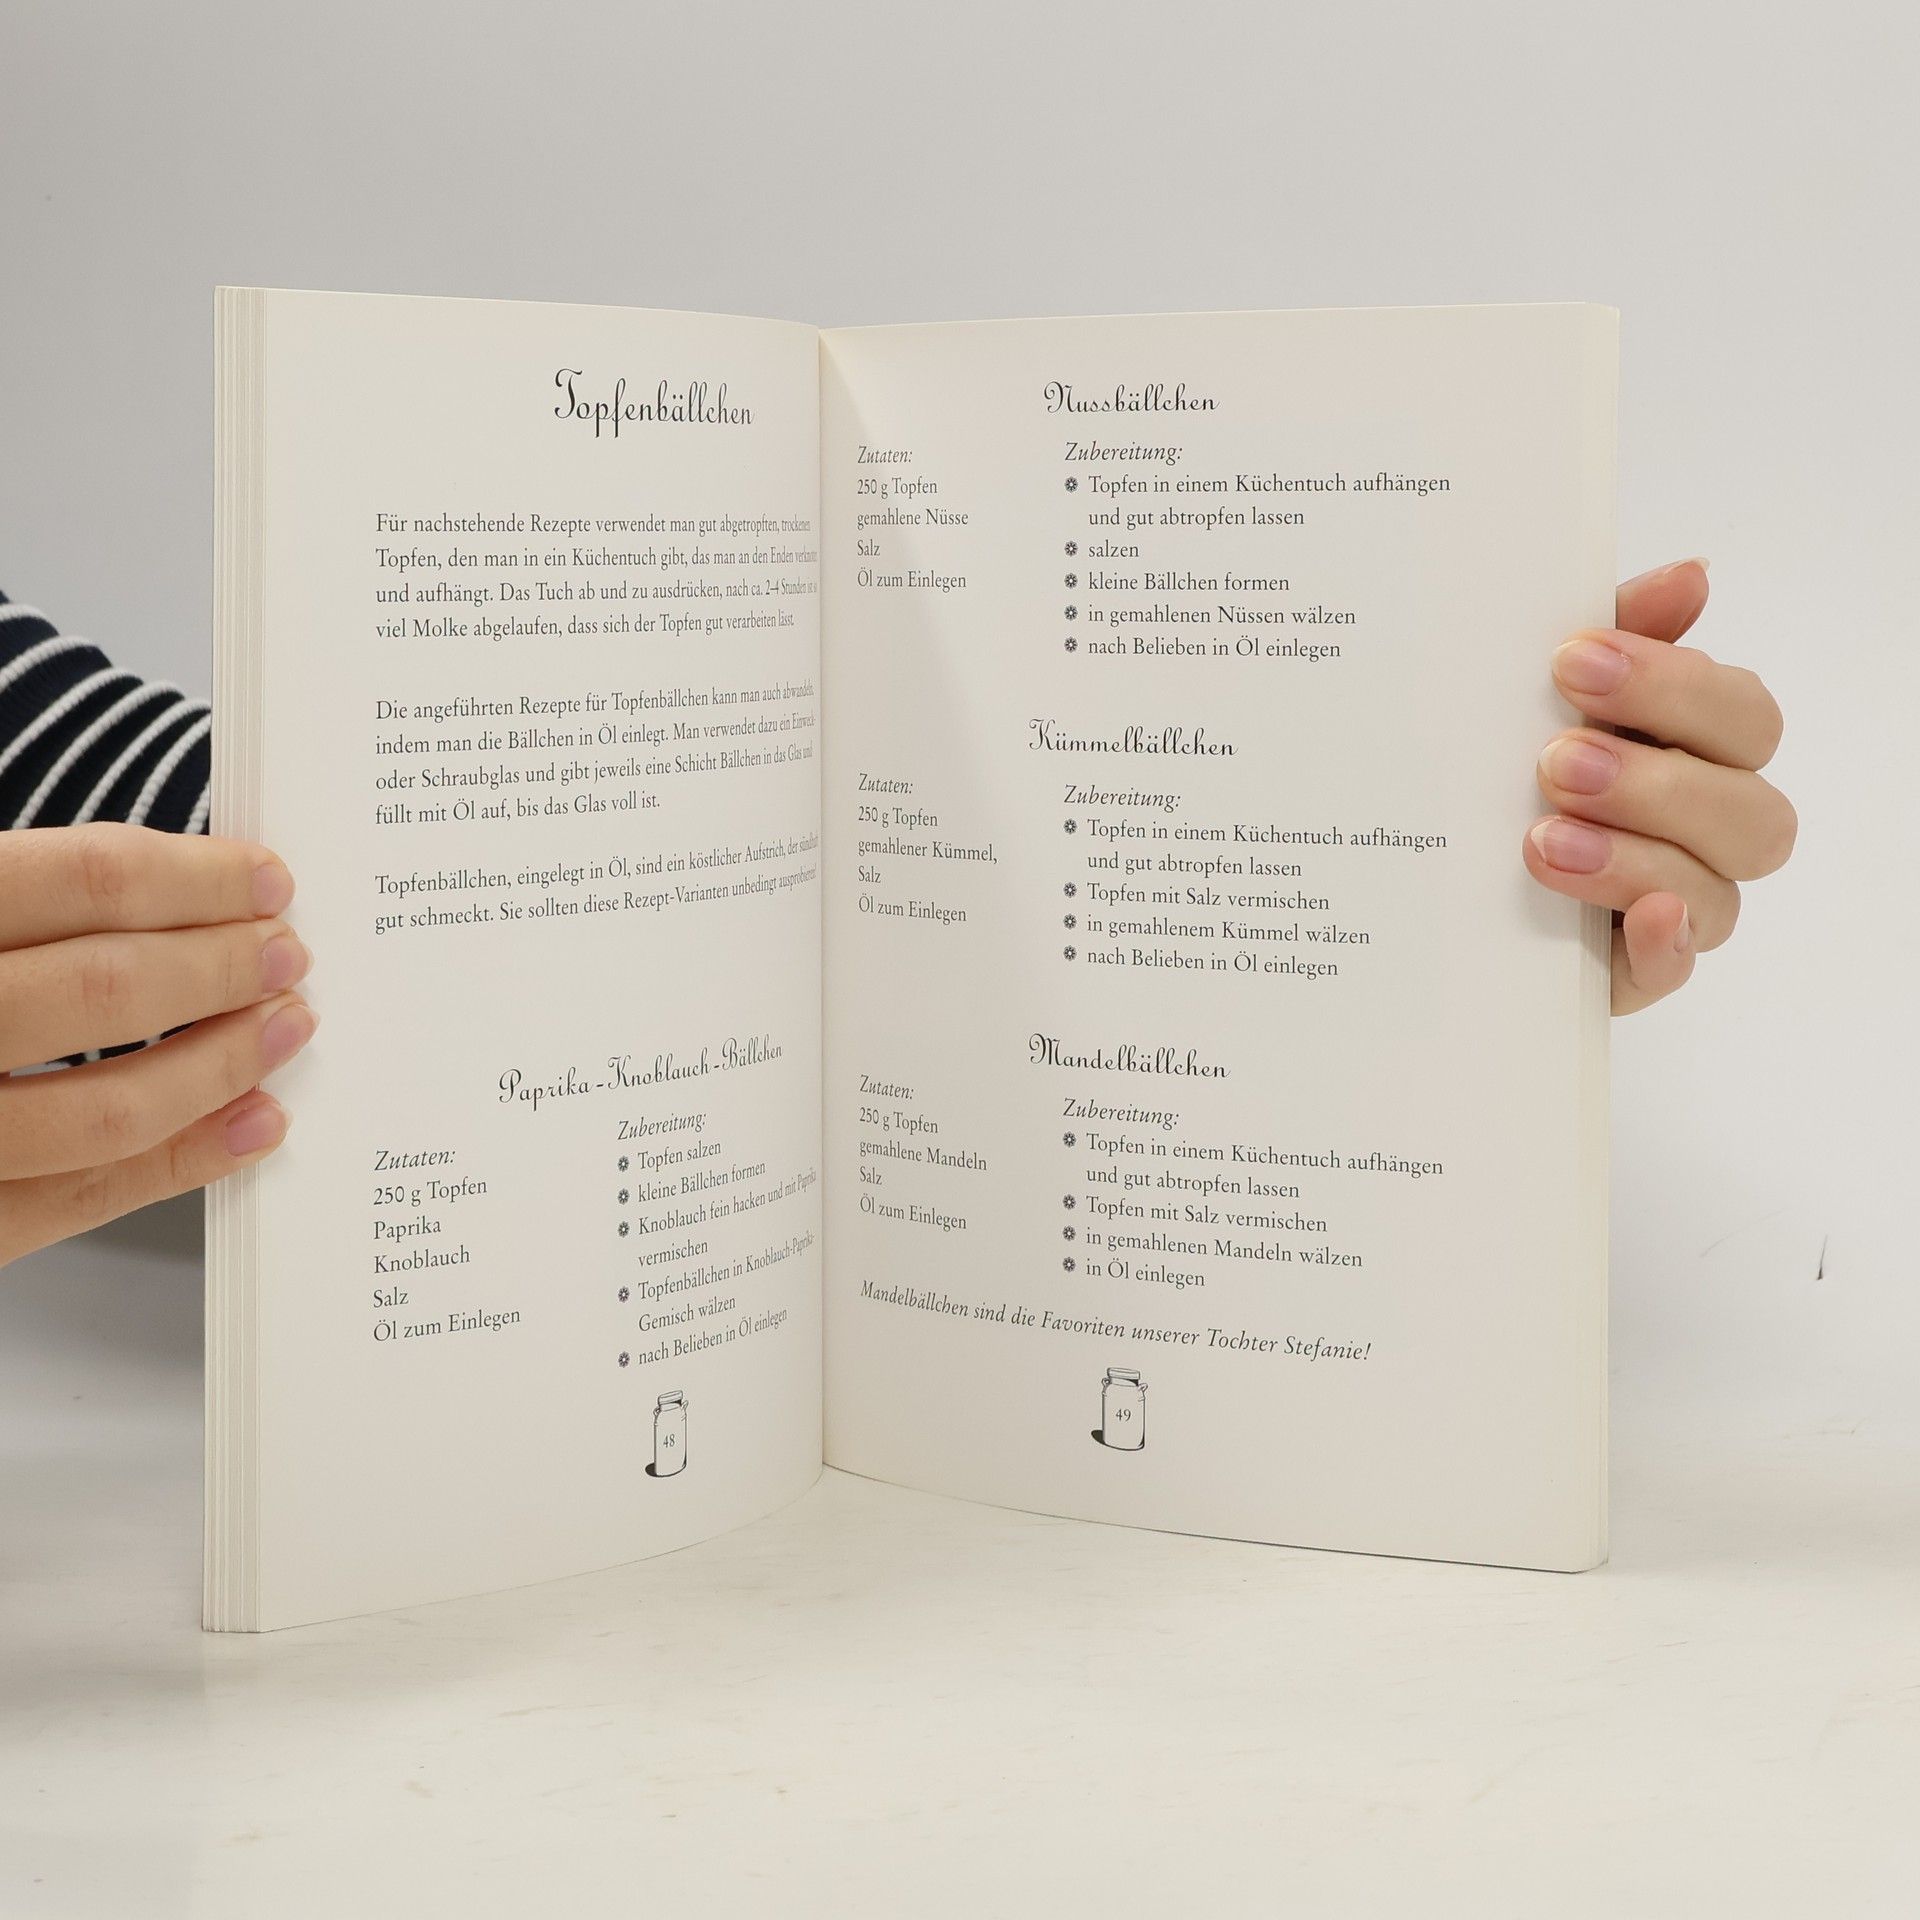 Topfenbällchen
Für nachstehende Rezepte verwendet man gut abgetropften, trockenen
Topfen, den man in ein Küchentuch gibt, das man an den Enden verknotet
und aufhängt. Das Tuch ab und zu ausdrücken, nach ca. 2–4 Stunden ist so
viel Molke abgelaufen, dass sich der Topfen gut verarbeiten lässt.
Die angeführten Rezepte für Topfenbällchen kann man auch abwandeln,
indem man die Bällchen in Öl einlegt. Man verwendet dazu ein Einweck-
oder Schraubglas und gibt jeweils eine Schicht Bällchen in das Glas und
füllt mit Öl auf, bis das Glas voll ist.
Topfenbällchen, eingelegt in Öl, sind ein köstlicher Aufstrich, der sündhaft
gut schmeckt. Sie sollten diese Rezept-Varianten unbedingt ausprobieren!
Paprika-Knoblauch-Bällchen
Zutaten:
250 g Topfen
Paprika
Knoblauch
Salz
Öl zum Einlegen
Zubereitung:
❁ Topfen salzen
❁ kleine Bällchen formen
❁ Knoblauch fein hacken und mit Paprika
vermischen
❁ Topfenbällchen in Knoblauch-Paprika-
Gemisch wälzen
❁ nach Belieben in Öl einlegen
48
Nussbällchen
Zutaten:
250 g Topfen
gemahlene Nüsse
Salz
Öl zum Einlegen
Zubereitung:
❁ Topfen in einem Küchentuch aufhängen
und gut abtropfen lassen
❁ salzen
❁ kleine Bällchen formen
❁ in gemahlenen Nüssen wälzen
❁ nach Belieben in Öl einlegen
Kümmelbällchen
Zutaten:
250 g Topfen
gemahlener Kümmel,
Salz
Öl zum Einlegen
Zubereitung:
❁ Topfen in einem Küchentuch aufhängen
und gut abtropfen lassen
❁ Topfen mit Salz vermischen
❁ in gemahlenem Kümmel wälzen
❁ nach Belieben in Öl einlegen
Mandelbällchen
Zutaten:
250 g Topfen
gemahlene Mandeln
Salz
Öl zum Einlegen
Zubereitung:
❁ Topfen in einem Küchentuch aufhängen
und gut abtropfen lassen
❁ Topfen mit Salz vermischen
❁ in gemahlenen Mandeln wälzen
❁ in Öl einlegen
Mandelbällchen sind die Favoriten unserer Tochter Stefanie!
49